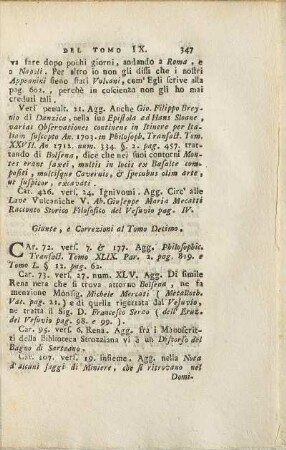 DEL TOMO IX. 347
vi fare dopo pochi giorni, andando a Roma, e
a Napoli. Per altro io non gli dissi che i nostri
Appennini sieno stati Vulcani, com' Egli scrive alla
pag. 601., perchè in coscienza non gli ho mai
creduti tali.
Vers. penult. 21. Agg. Anche Gio. Filippo Brey-
nio di Danzica, nella sua Epistola ad Hans Sloane,
varias Observationes continens in Itinere per Ita-
liam suscepto An. 1703. in Philosoph. Transact. Tom.
XXVII. An 1712. num. 334. §. 2. pag. 457. trat-
tando di Bolsena, dice che nei suoi contorni Mon-
tes erant saxei, multis in locis ex Basalte com-
positi, multisque Cavernis, & specubus olim arte,
ut suspicor, excavati.
Car. 426. vers. 24. Ignivomi. Agg. Circ' alle
Lave Vulcaniche V. Ab. Giuseppe Maria Mecatti
Racconto Storico Filosofico del Vesuvio pag. IV.
Giunte, e Correzioni al Tomo Decimo.
CAr. 72. vers. 7. & 177. Agg. Philosophic.
Transact. Tomo XLIX Par. 2. pag. 819. e
Tomo L. § 12. pag. 62.
Car. 73. vers. 27. num. XLV. Agg. Di simile
Rena nera che si trova attorno Bolsena, ne fa
menzione Monsig. Michele Mercati [ Metalloth.
Vat. pag. 21. ] e di quella rigettata dal Vesuvio,
ne tratta il Sig. D. Francesco Serao ( dell' Eruz.
del Vesuvio pag. 98. e 99. ).
Car. 95. vers. 6. Rena. Agg. fra i Manoscrit-
ti della Biblioteca Strozziana vi è un Disborso del
Bagno di Sarteano.
Car. 107. vers. 19. insieme. Agg. nella Nota
d'alcuni Saggi di Miniere, che si ritrovano nel
Domi-